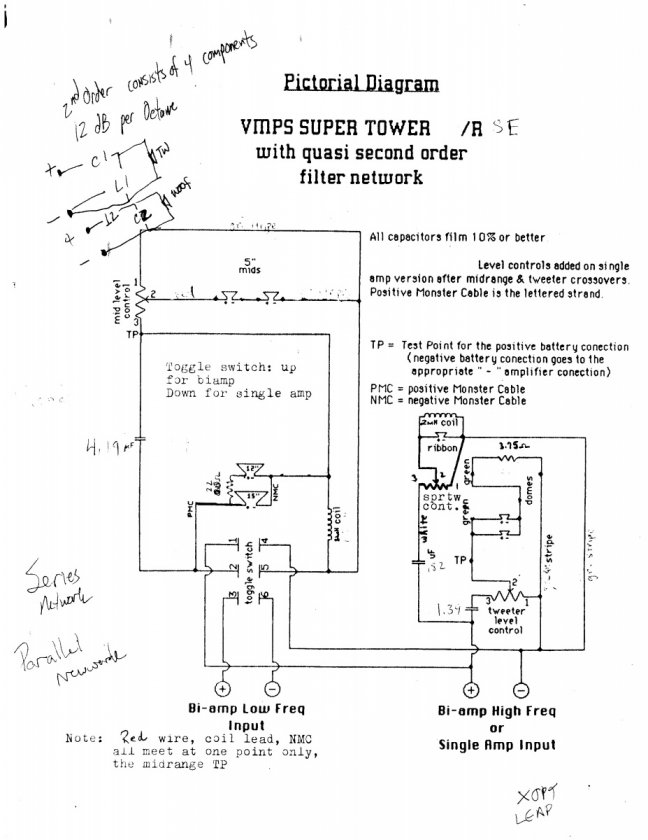 2nd Order consists of 4 components
12 dB per Octave
+ C1 TW
L1
-
+ L2 C2 Woof
-
Pictorial Diagram
VMPS SUPER TOWER /R SE
with quasi second order
filter network
All capacitors film 10% or better
Level controls added on single
amp version after midrange & tweeter crossovers.
Positive Monster Cable is the lettered strand.
TP = Test Point for the positive battery conection
(negative battery conection goes to the
appropriate " - " amplifier conection)
PMC = positive Monster Cable
NMC = negative Monster Cable
gr. stripe
5"
mids
mid level
control
1
2
3
TP
Toggle switch: up
for biamp
Down for single amp
4.19 µF
12"
15"
PMC
NMC
2mH coil
toggle switch
1 4
2 5
3 6
2mH coil
ribbon
3 2 1
sprtw
cont.
white
uF
.82
3.75Ω
green
green
domes
TP
stripe
gr. stripe
1.34
3 2 1
tweeter
level
control
Series
Network
Parallel
Newworde
+ -
Bi-amp Low Freq
Input
+ -
Bi-amp High Freq
or
Single Amp Input
Note: Red wire, coil lead, NMC
all meet at one point only,
the midrange TP
XOPT
LEAP